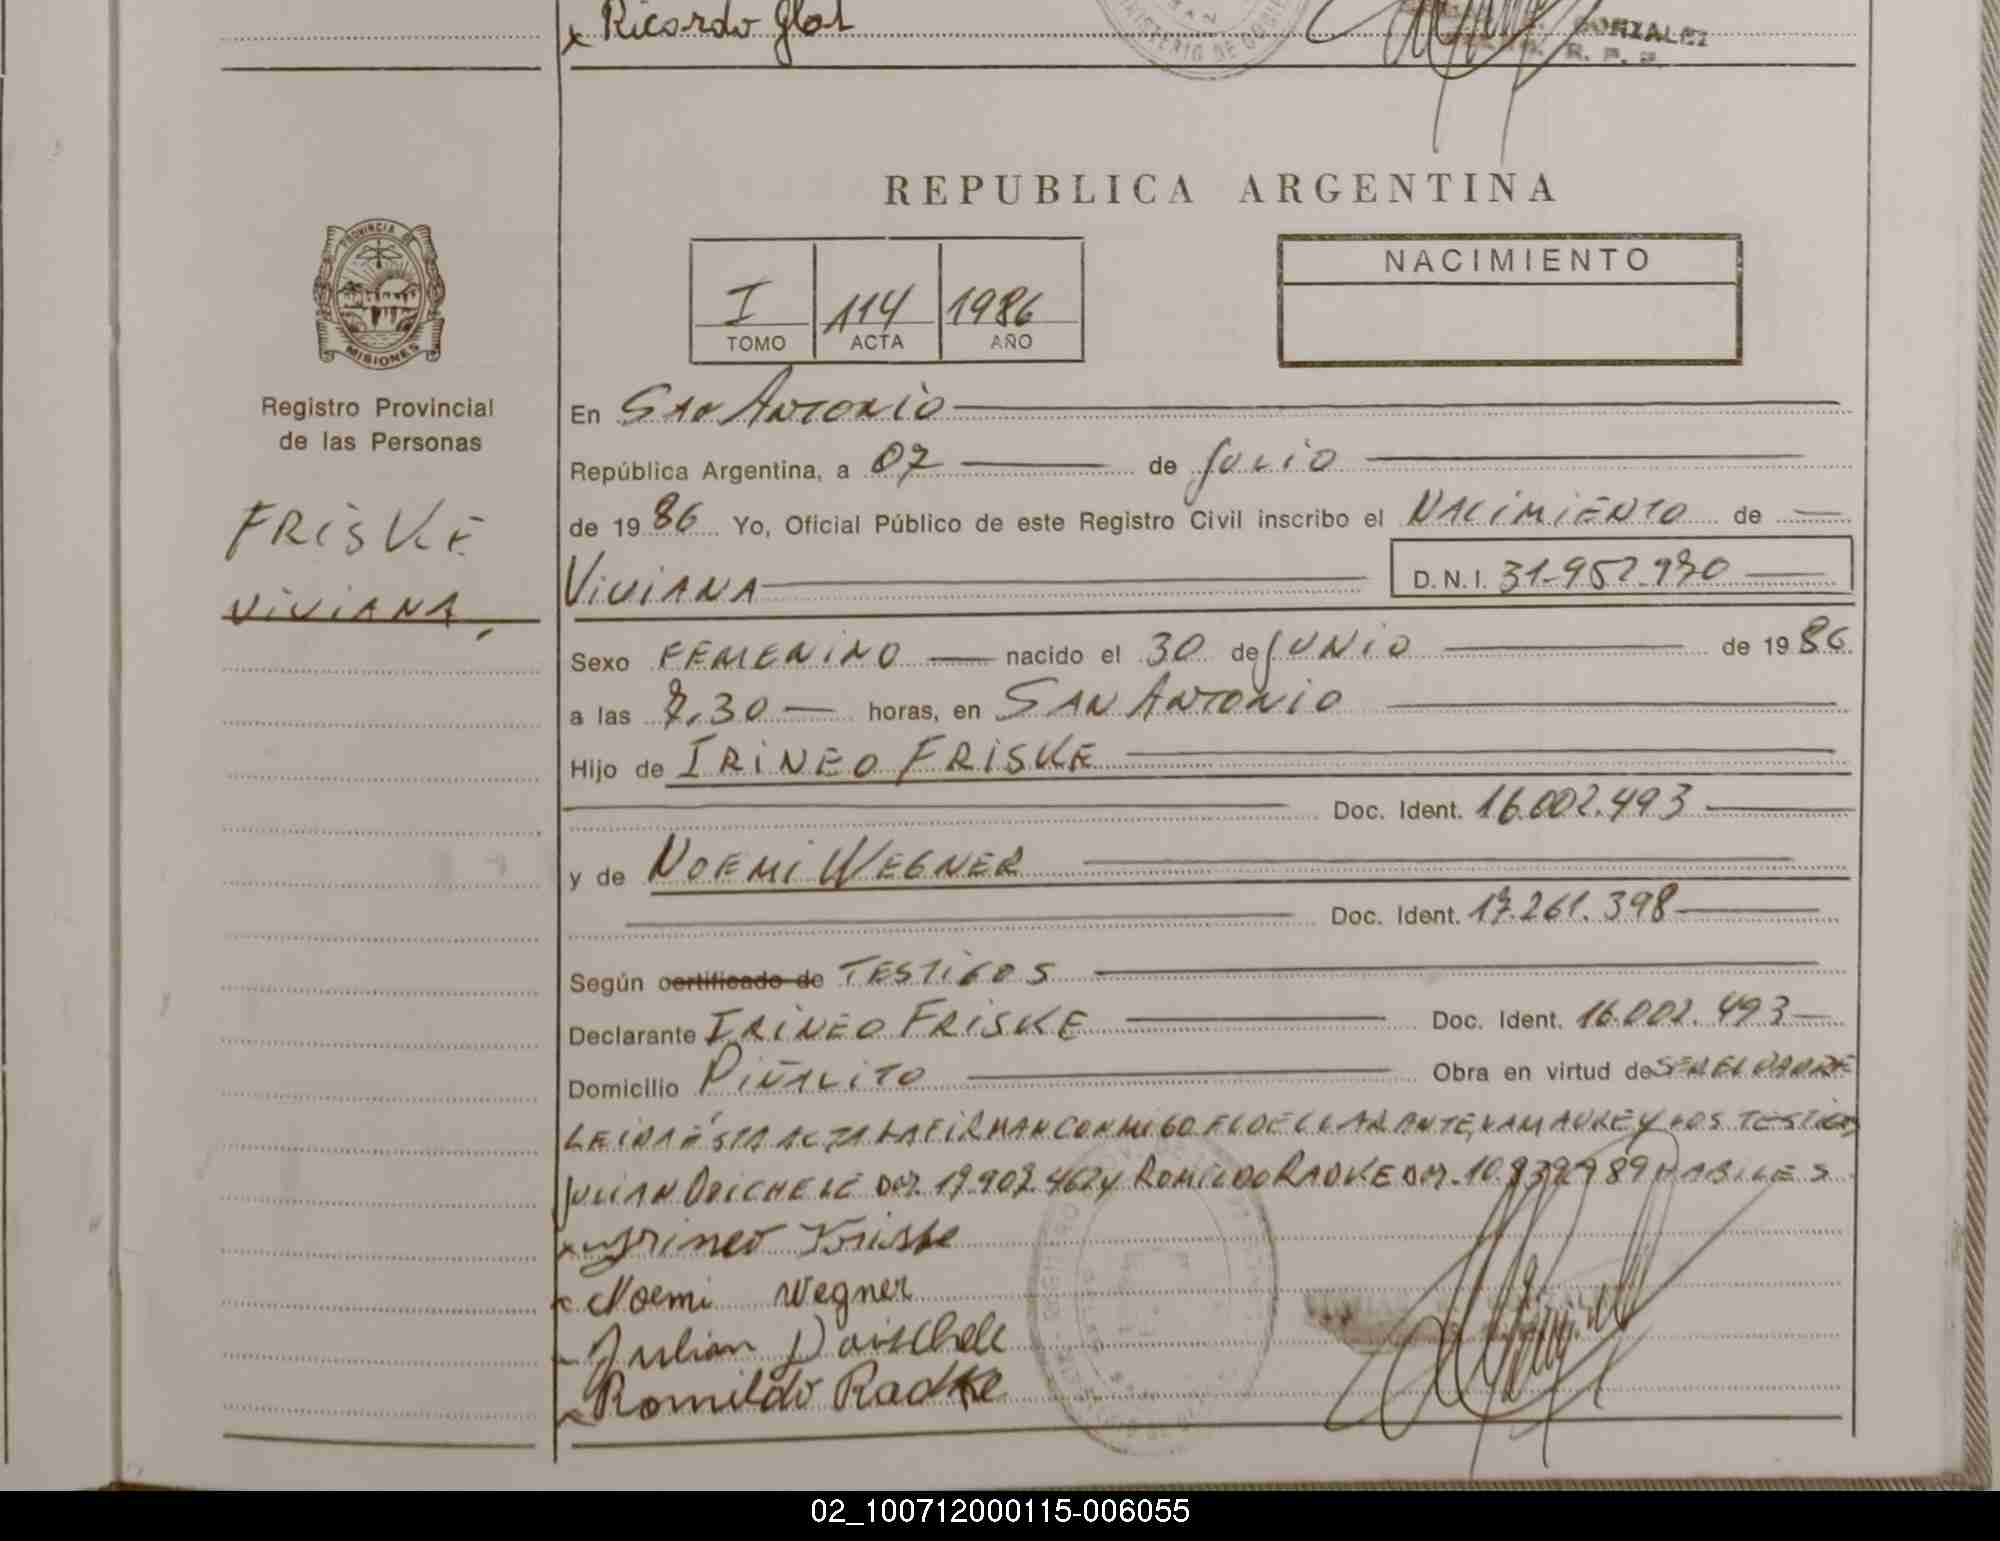 x Ricardo Glol
MINISTERIO DE GOBIE
GONZALEZ
R. P. P.
REPUBLICA ARGENTINA
PROVINCIA DE
MISIONES
Registro Provincial
de las Personas
FRISKE
VIVIANA,
I 114 1986
TOMO ACTA AÑO
NACIMIENTO
En SAN ANTONIO
República Argentina, a 07 de JULIO
de 1986 Yo, Oficial Público de este Registro Civil inscribo el NACIMIENTO de
VIVIANA D.N.I. 31.952.930
Sexo FEMENINO nacido el 30 de JUNIO de 1986.
a las 8,30 horas, en SAN ANTONIO
Hijo de IRINEO FRISKE
Doc. Ident. 16.002.493
y de NOEMI WEGNER
Doc. Ident. 17.261.398
Según certificado de TESTIGOS
Declarante IRINEO FRISKE Doc. Ident. 16.002.493
Domicilio PIÑALITO Obra en virtud de SER EL PADRE
LEIDA ÉSTA ACTA LA FIRMAN CONMIGO EL DECLARANTE, LA MADRE Y LOS TESTIGOS
JULIAN DOICHELE DNI. 17.907.462 y ROMILDO RADKE DNI. 10.839.989 HABILES
x Yrineo Friske
x Noemi Wegner
Julian Doischele
Romildo Radke
02_100712000115-006055